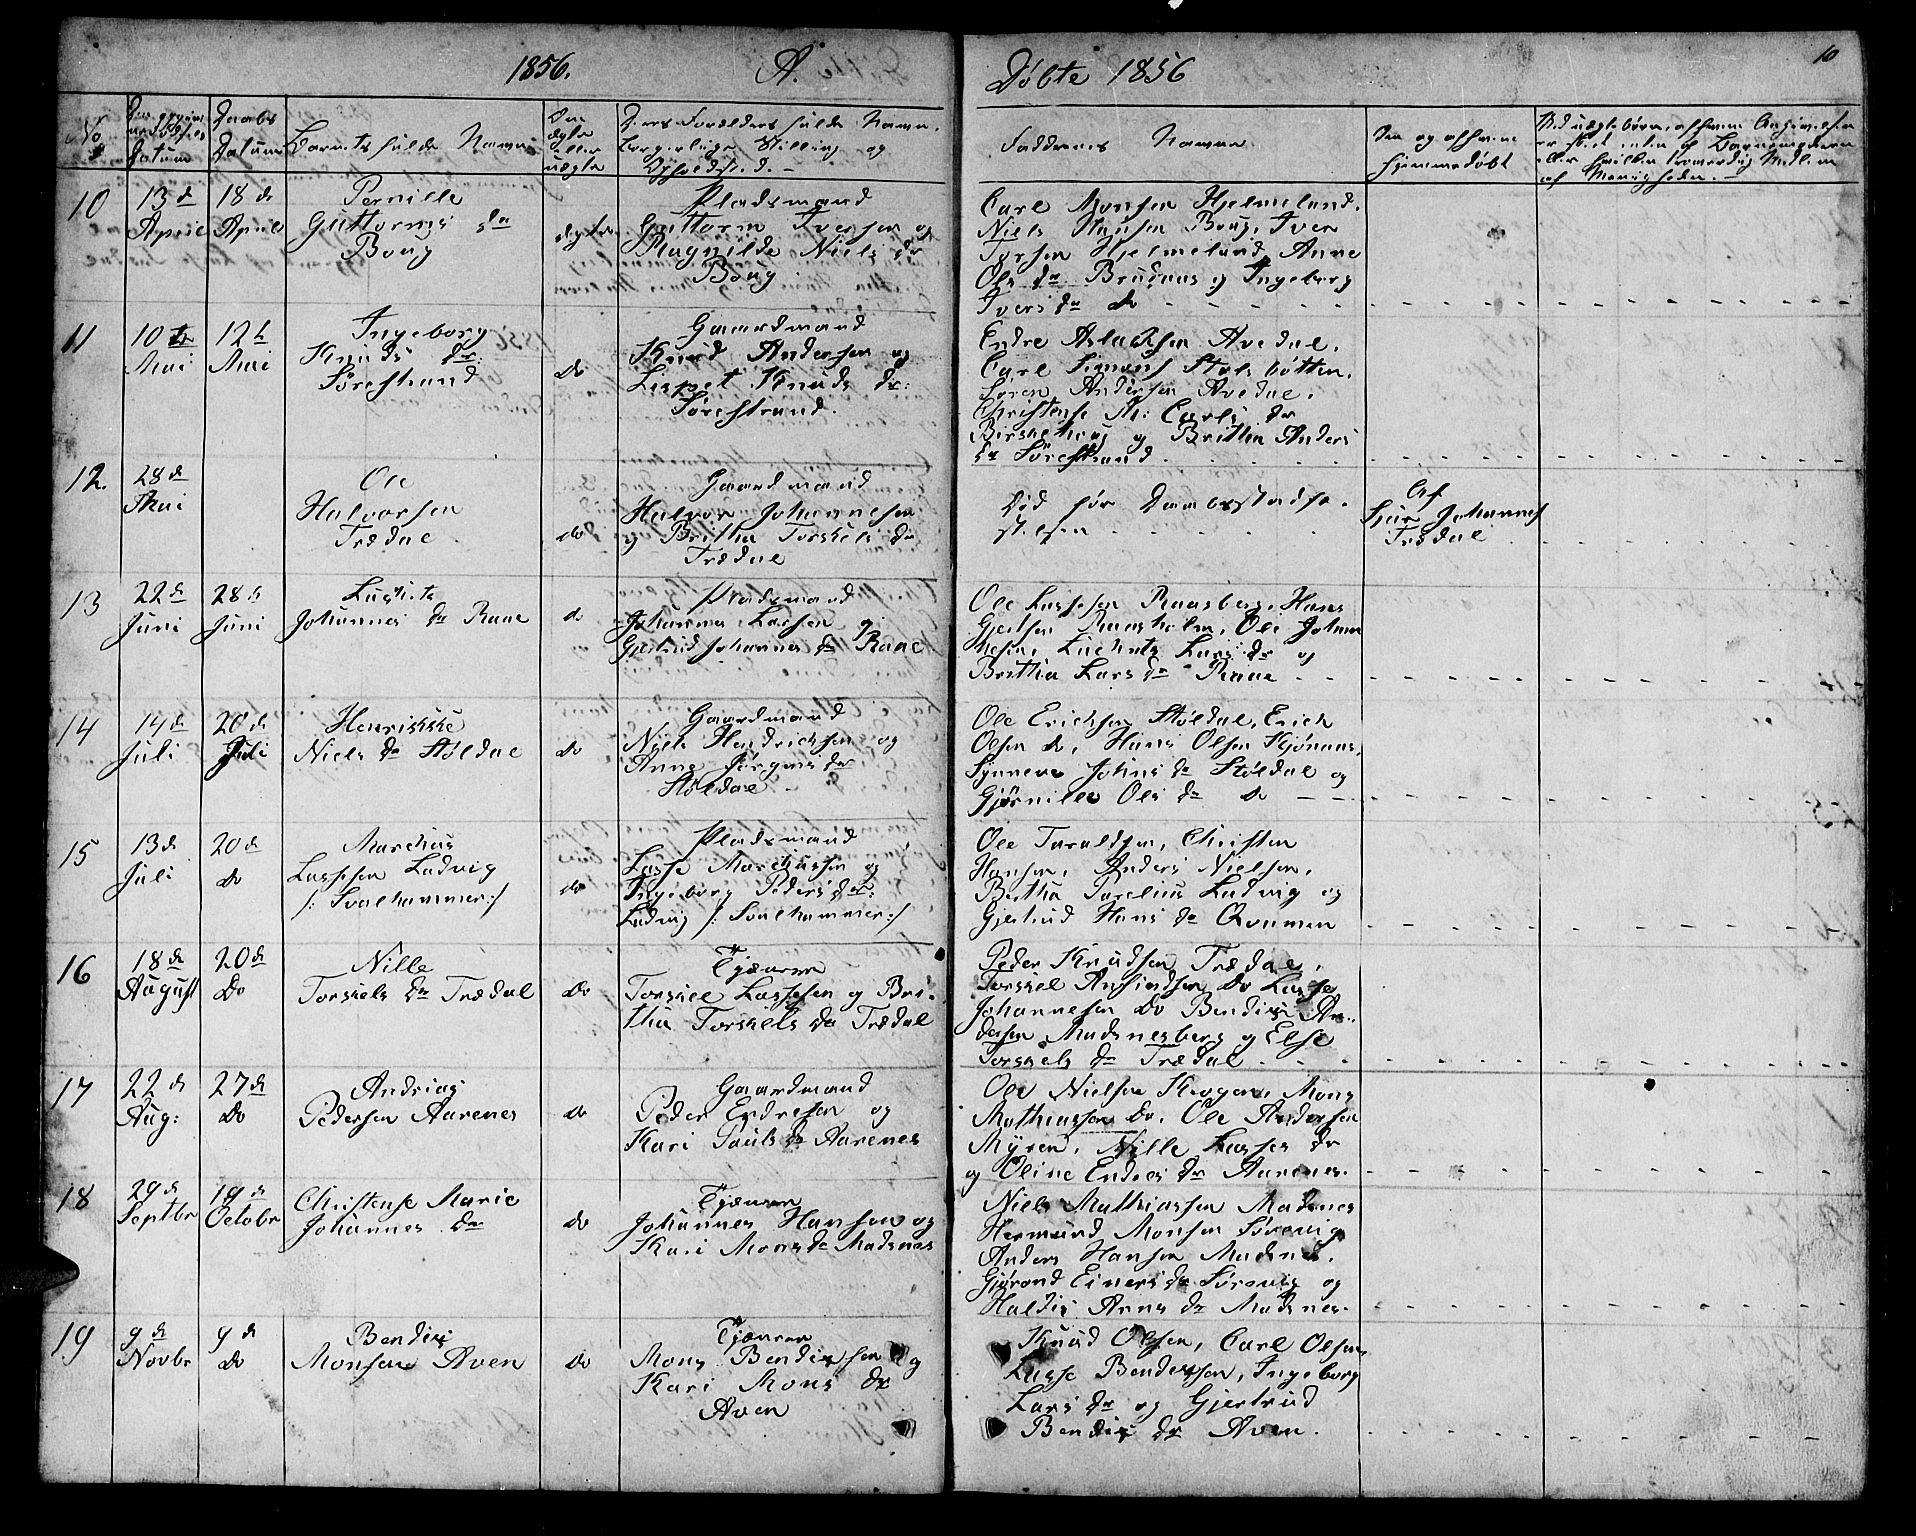 1856. A.
Døbte 1856
10
No
Datum
Daabs
Datum
Barnets fulde Navn
ægte
eller
uægte
Forældres fulde Navn,
borgerlige Stilling og
Opholdsted.
Faddernes Navne
og af hvem
hjemmedøbt
10
13 d
April
18 d
April
Pernille
Guttorms da
Boug
ægte
Pladsmand
Guttorm Iversen og
Magnilde Niels dr
Boug
Carl Monsen Hjelmeland,
Niels Hansen Boug, Iver
Torsen Hjelmeland, Anne
Ols dr og Ingeborg
Ivers da do
11
10 de
Mai
12 te
Mai
Ingeborg
Knuds dr.
Sørestrand
do
Gaardmand
Knud Andersen og
Lispet Knuds dr.
Sørestrand.
Endre Aslaksen Avedal,
Carl Simons
Søren Andersen Avedal,
Christense M: Carls dr
og Britha Anders
dr Sørestrand
12.
28 d
Mai
Ole
Halvorsen
Trædal
do
Gaardmand
Halvor Johannesen
og Britha Torskels dr
Trædal
Død før Daabsstadfæ-
stelsen
Af
Sjur Johannes
Trædal
13
22 d
Juni
28 d
Juni
Johannes da Raae
do
Pladsmand
Johannes Larsen og
Gjertrud Johannes da Raae
Ole Lassesen Raasberg, Hans
Gjertsen Raasholm, Ole Johan
nesen, Lars dr og
Britha Lars da Raae
14
14 d
Juli
20 d
Juli
Henrikke
Niels da Støldal
do
Gaardmand
Niels Hendrichsen og
Anne Jørgens dr
Støldal
Ole Erichsen Støldal, Erich
Olsen do, Hans Olsen Kjønaas,
Synneve Johns da Støldal og
Gjørnille Ols da do
15
13 d
Juli
20 d
do
Marchus
Lassesen Ludvig
/: Svalhammer :/
do
Pladsmand
Lasse Marchussen og
Ingeborg Peders dr:
Ludvig /: Svalhammer :/
Ole Taraldsen, Christen
Hansen, Anders Nielsen,
Bertha Torelius Ludvig og
Gjertrud Hans da Qvammen
16
18 de
August
20 d
Do
Nille
Torskels da Trædal
do
Tjæneren
Torskel Lassesen og Bri-
tha Torskels da Trædal
Peder Knudsen Trædal,
Torskel Amundsen Do Lasse
Johannesen Do Bendix An-
dersen Madsnesberg og Else
Torskels da Trædal
17
22 d
Aug:
27 d
Do
Andrias
Pedersen Aarenes
do
Gaardmand
Peder Endresen og
Kari Pauls da Aarenes
Ole Nielsen Krogen, Mons
Mathiassen do, Ole Andersen
Myren, Nille Lasses dr
og Oline Endres dr Aarenes.
18
29 d
Septbr
19 d
Octobr
Christense Marie
Johannes dr
do
Tjæneren
Johannes Hansen og
Kari Mons da Madsnes
Niels Mathiassen Madsnes
Hermund Monsen Sørevig
Anders Hansen Madsnes,
Gjørond Einers da Sørevig og
Haldis Arns da Madsnes.
19
9 de
Novbr
9 d
do
Bendix
Monsen Aven
do
Tjæneren
Mons Bendixsen og
Kari Mons dr
Aven
Knud Olsen, Carl Olsen,
Lasse Bendexsen, Ingeborg
Lars dr og Gjertrud
Bendix dr Aven.